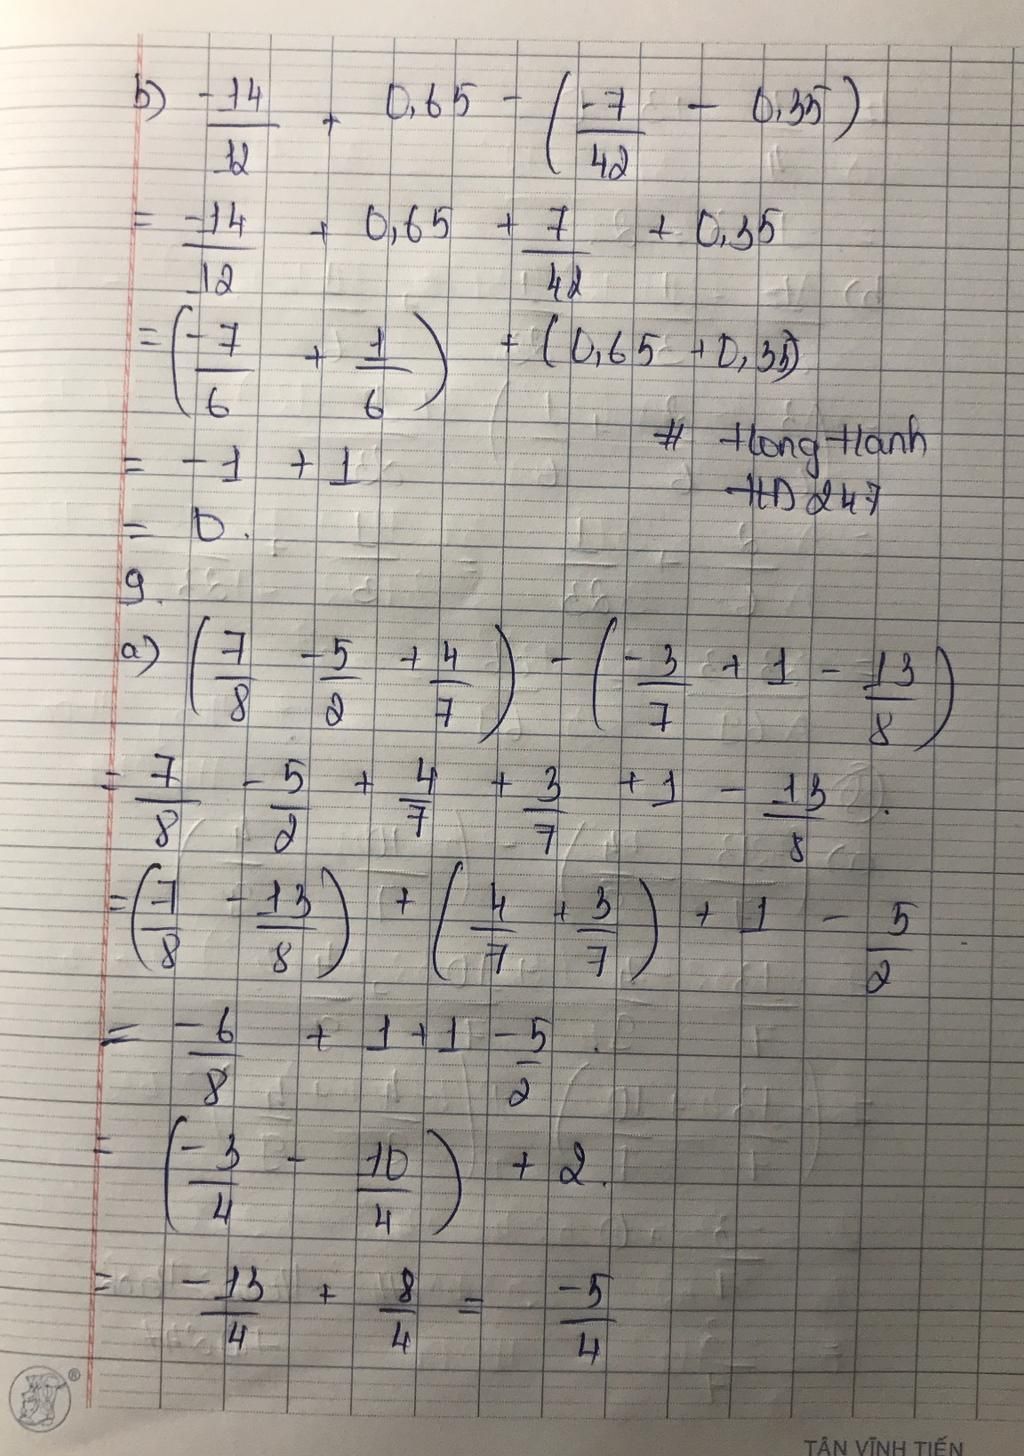 b) -14/12 + 0,65 - (-7/42 - 0,35)
= -14/12 + 0,65 + 7/42 + 0,35
= (-7/6 + 1/6) + (0,65 + 0,35)
= -1 + 1
# Hong Hanh
HD 247
= 0.
9.
a) (7/8 - 5/2 + 4/7) - (-3/7 + 1 - 13/8)
= 7/8 - 5/2 + 4/7 + 3/7 + 1 - 13/8.
= (7/8 - 13/8) + (4/7 + 3/7) + 1 - 5/2
= -6/8 + 1 + 1 - 5/2.
= (-3/4 - 10/4) + 2.
= -13/4 + 8/4 = -5/4
TÂN VĨNH TIẾN